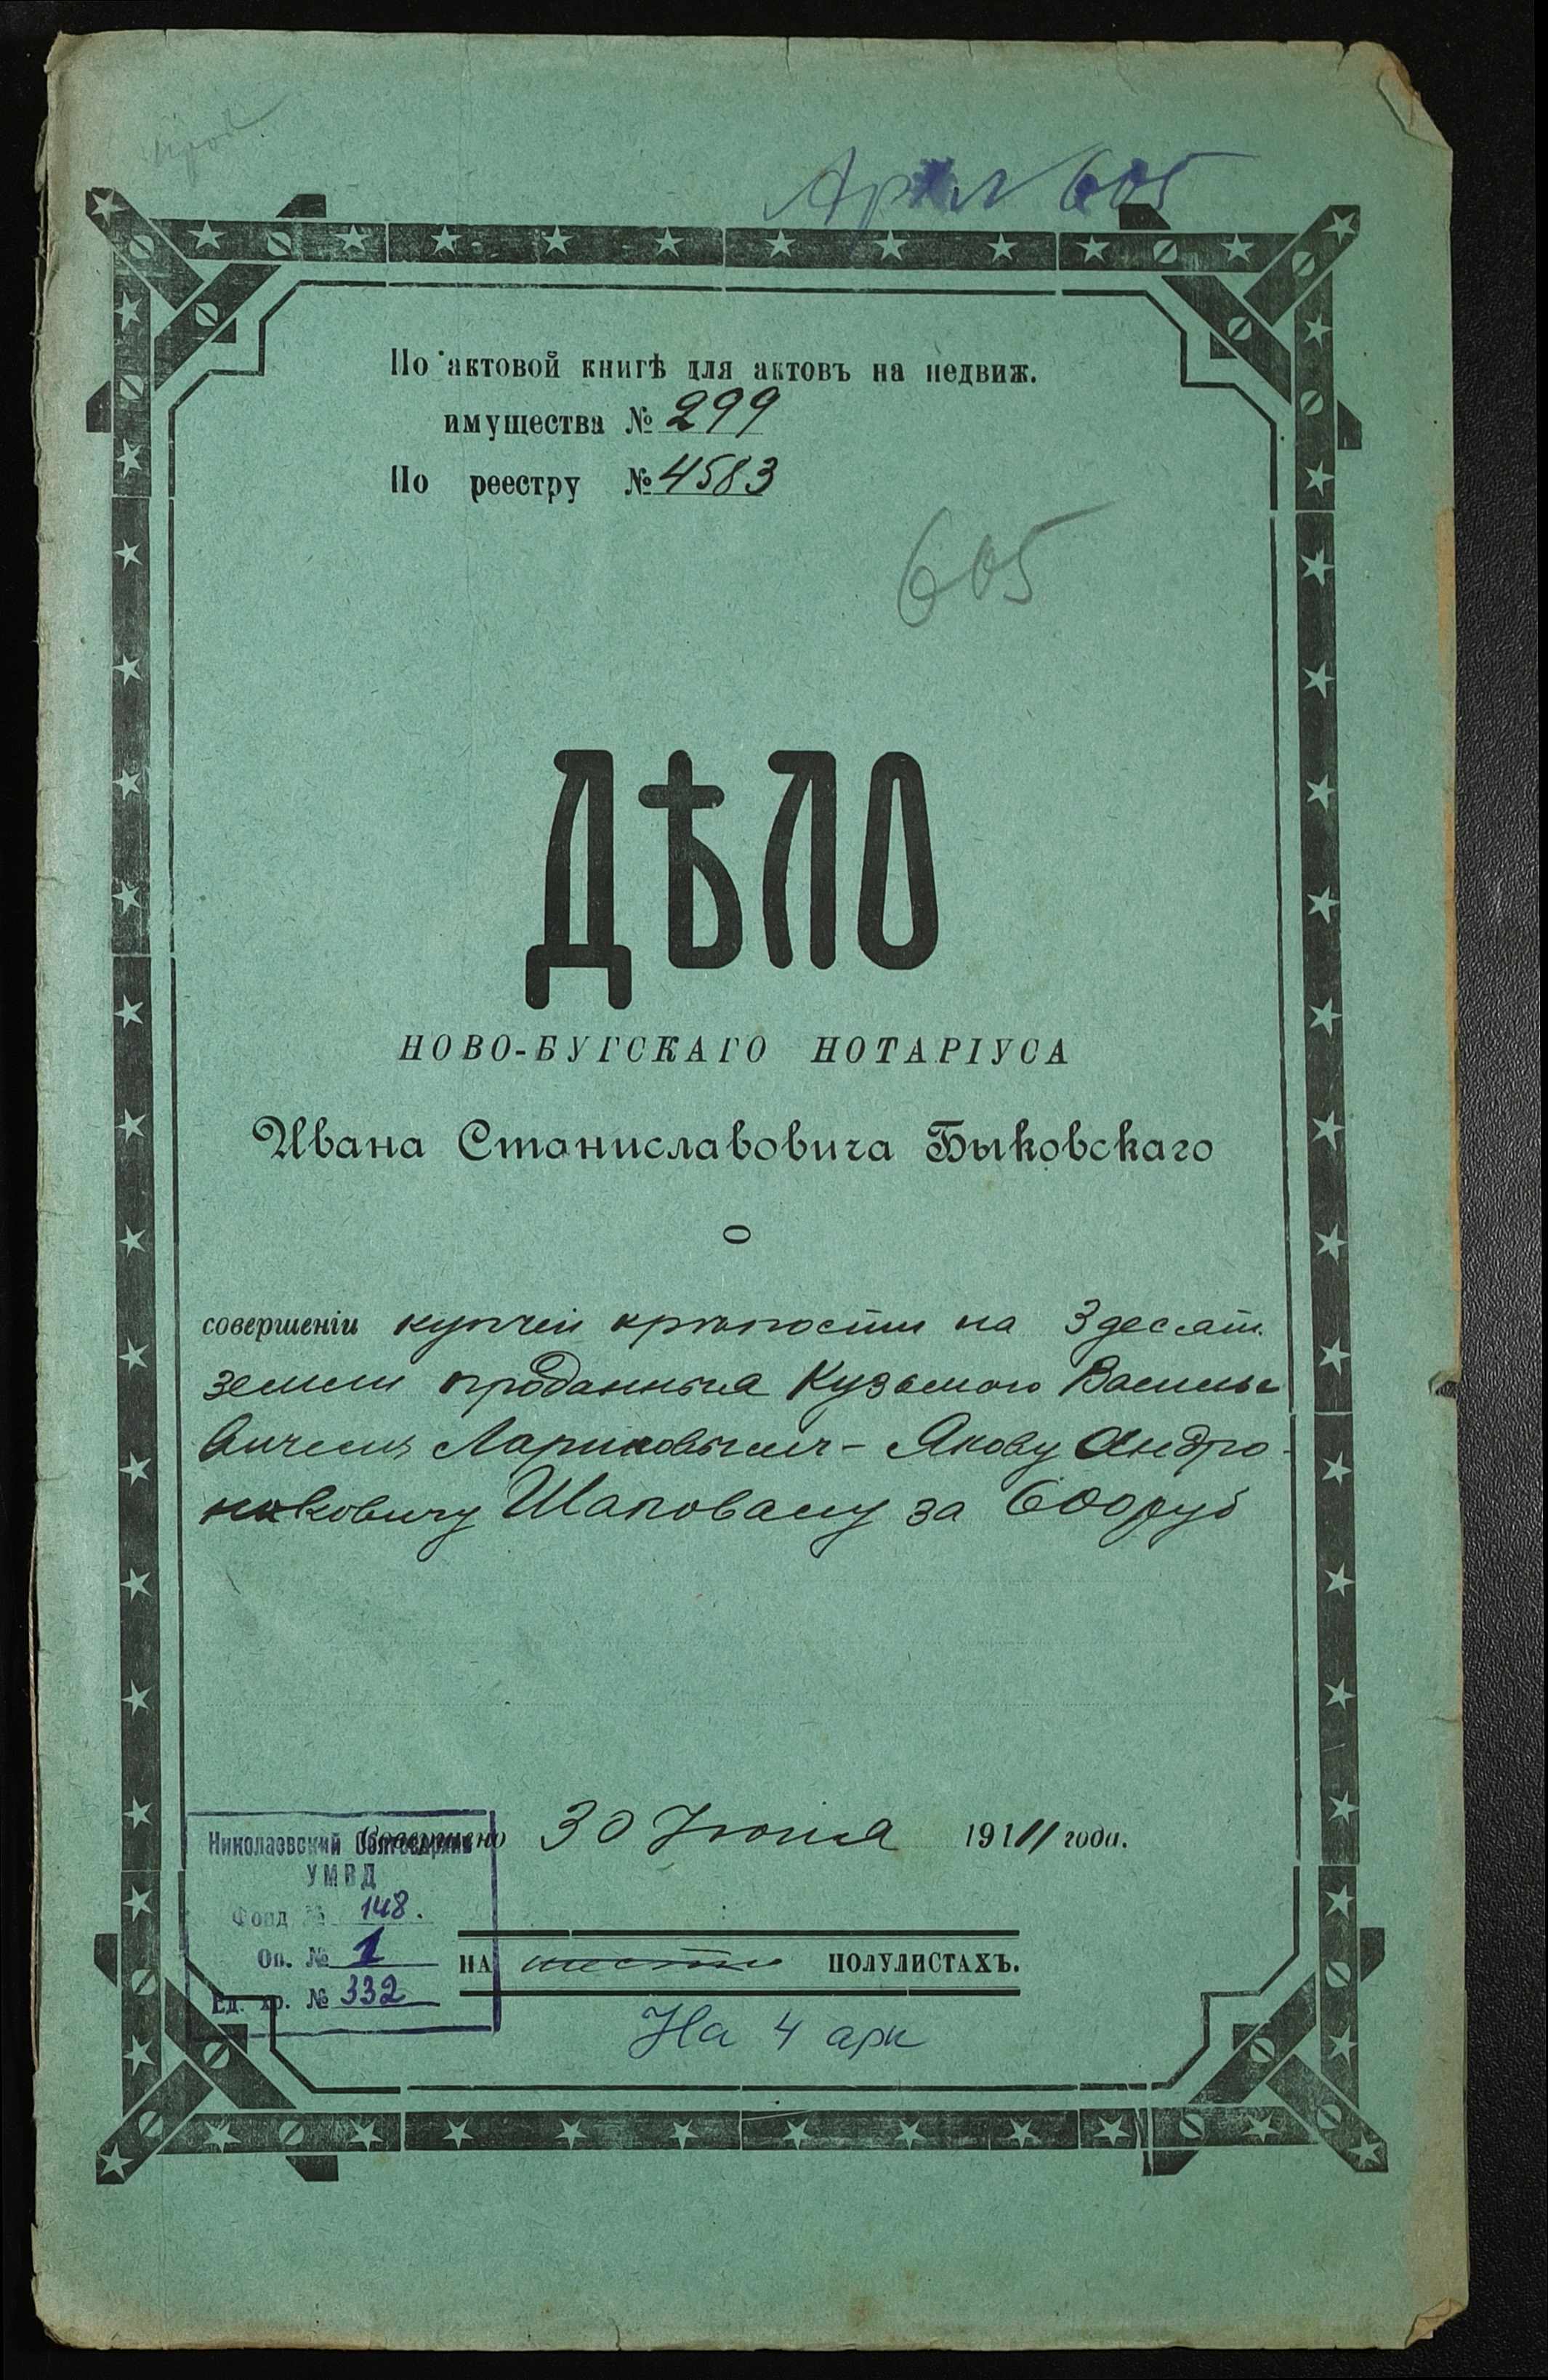 Арх № 605
По актовой книгѣ для актовъ на недвиж.
имущества № 299
По реестру № 4583
605
ДѢЛО
НОВО-БУГСКАГО НОТАРІУСА
Ивана Станиславовича Быковскаго
О
совершеніи купчей крѣпости на 3 десят.
земли проданныя Кузьмою Василье
вичемъ Лариковымъ - Якову Андро-
никовичу Шаповалу за 600 руб
Совершено 30 Іюня 1911 года.
Николаевский Облгосархив
УМВД
Фонд № 148.
Оп. № 1
Ед. хр. № 332
НА шести ПОЛУЛИСТАХЪ.
На 4 арк